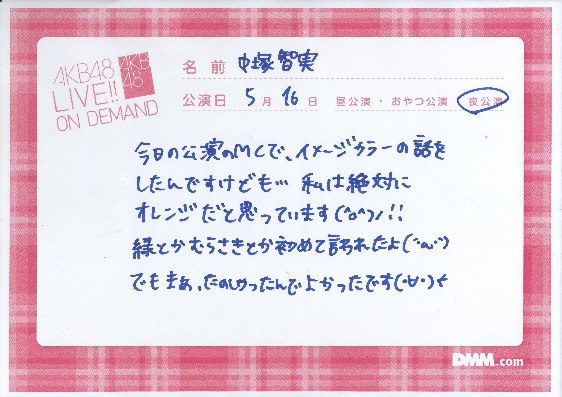 AKB48
LIVE!!
ON DEMAND
AKB
48
名前 中塚智実
公演日 5月16日 昼公演・おやつ公演・夜公演
今日の公演のMCで、イメージカラーの話を
したんですけども… 私は絶対に
オレンジだと思っています(^o^)/!!
緑とかむらさきとか初めて言われたよ(˘ω˘)
でもまぁ、たのしかったんでよかったです(・∀・)
DMM.com